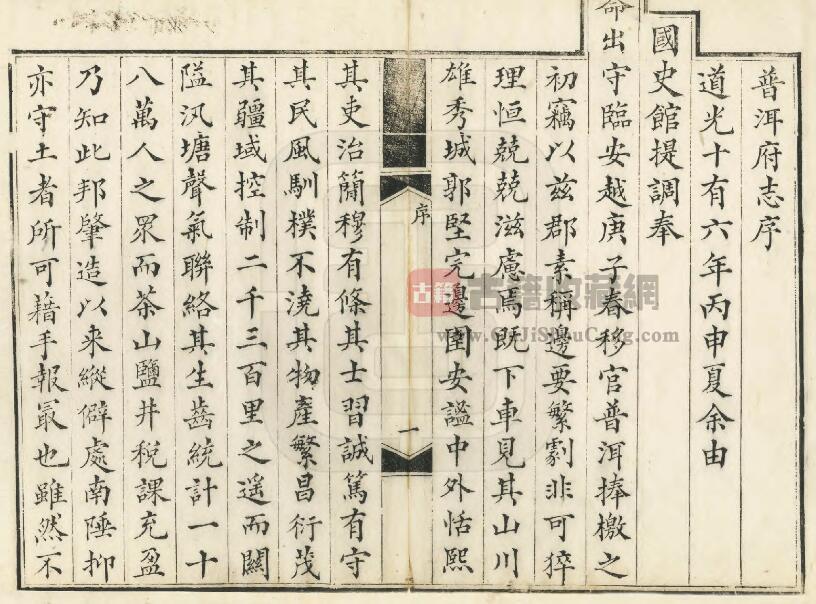 普洱府志序
道光十有六年丙申夏余由
國史館提調奉
命出守臨安越庚子春移官普洱捧檄之
初竊以茲郡素稱邊要繁劇非可猝
理恒兢兢滋慮焉既下車見其山川
雄秀城郭堅完邊圉安謐中外恬熙
序
一
其吏治簡穆有條其士習誠篤有守
其民風馴樸不澆其物產繁昌衍茂
其疆域控制二千三百里之遥而關
隘汛塘聲氣聯絡其生齒統計一十
八萬人之眾而茶山鹽井稅課充盈
乃知此邦肇造以來縱僻處南陲抑
亦守土者所可藉手報最也雖然不
古籍
古籍收藏網
www.GuJiShuCang.com